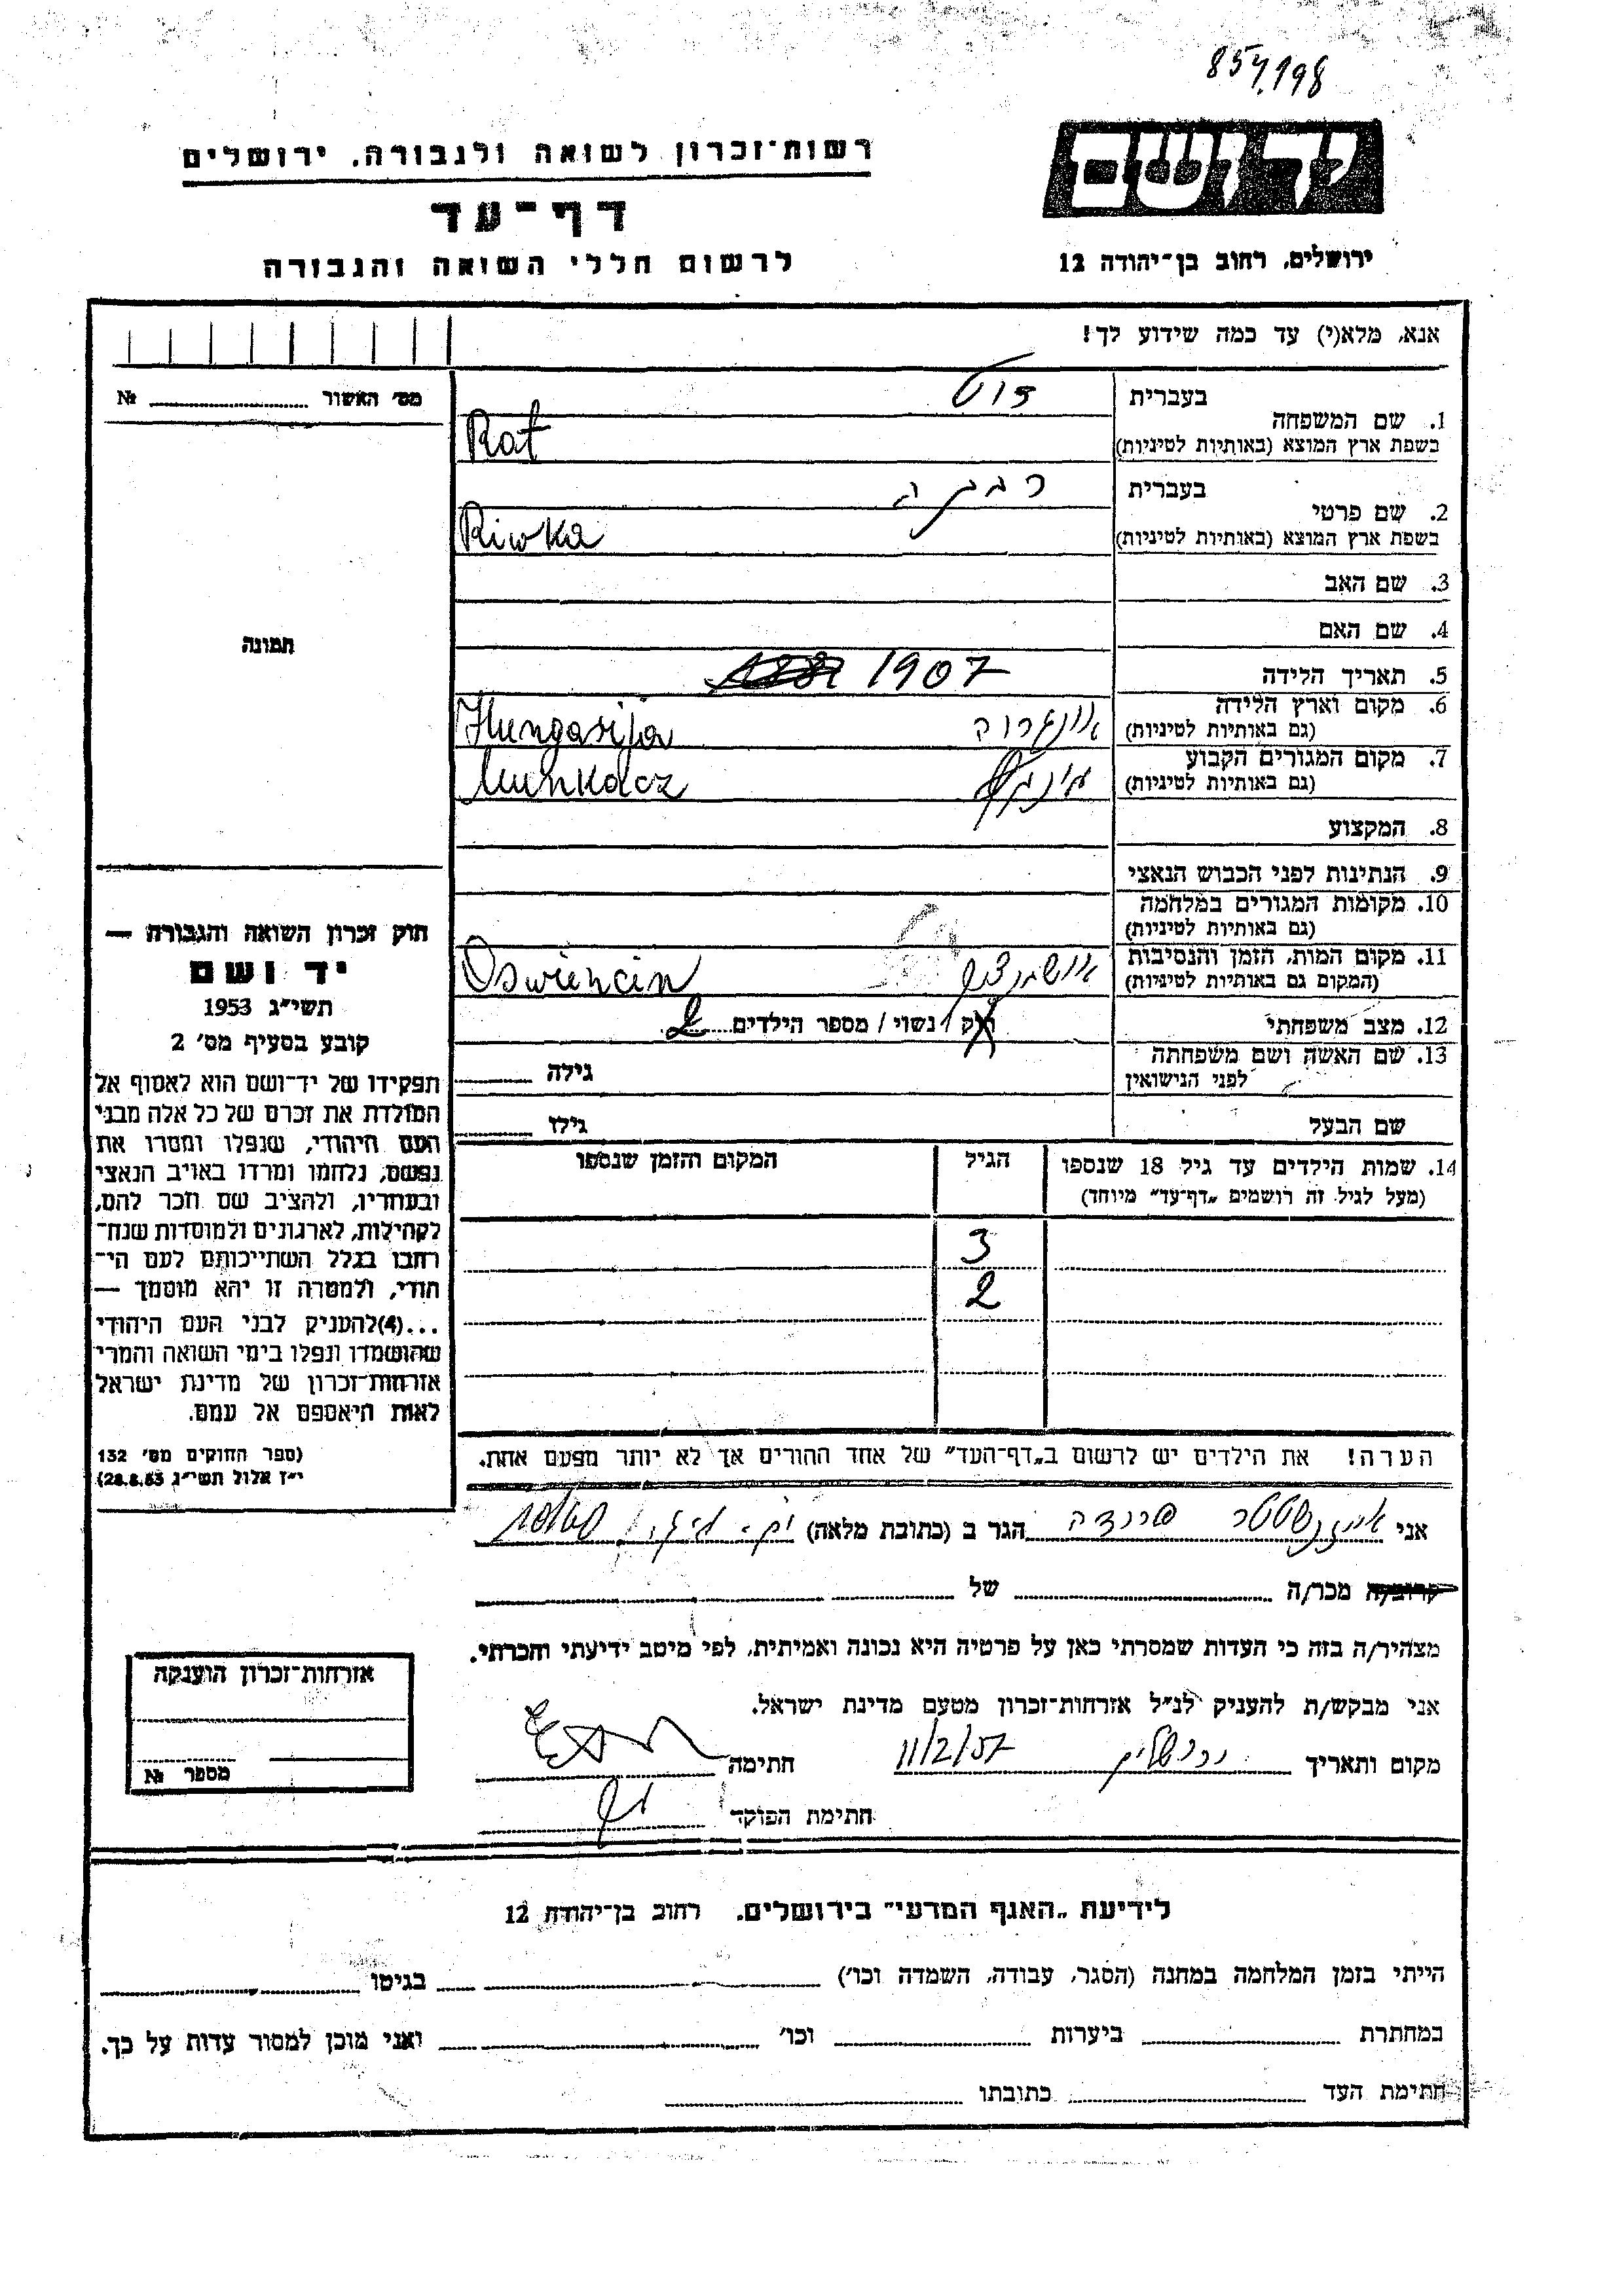 854198
רשות־זכרון לשואה ולגבורה, ירושלים
יד ושם
דף־עד
לרשום חללי השואה והגבורה
ירושלים, רחוב בן־יהודה 12
אנא, מלא(י) עד כמה שידוע לך!
מס׳ האשור № 
1. שם המשפחה
בעברית
בשפת ארץ המוצא (באותיות לטיניות) Rat
2. שם פרטי
בעברית רבקה
בשפת ארץ המוצא (באותיות לטיניות) Riwka
3. שם האב
4. שם האם
תמונה
5. תאריך הלידה 1907
6. מקום וארץ הלידה
(גם באותיות לטיניות) Hungarija
7. מקום המגורים הקבוע
(גם באותיות לטיניות) Munkacz
8. המקצוע
9. הנתינות לפני הכבוש הנאצי
10. מקומות המגורים במלחמה
(גם באותיות לטיניות)
11. מקום המות, הזמן והנסיבות
(המקום גם באותיות לטיניות) Oswiencin
12. מצב משפחתי רוק / נשוי / מספר הילדים 2
13. שם האשה ושם משפחתה
לפני הנישואין גילה
שם הבעל גילו
14. שמות הילדים עד גיל 18 שנספו הגיל המקום והזמן שנספו
(מעל לגיל זה רושמים „דף־עד״ מיוחד)
3
2
הערה! את הילדים יש לרשום ב„דף־העד״ של אחד ההורים אך לא יותר מפעם אחת.
חוק זכרון השואה והגבורה —
יד ושם
תשי״ג 1953
קובע בסעיף מס׳ 2
תפקידו של יד־ושם הוא לאסוף אל
המולדת את זכרם של כל אלה מבני
העם היהודי, שנפלו ומסרו את
נפשם, נלחמו ומרדו באויב הנאצי
ובעוזריו, ולהציב שם וזכר להם,
לקהילות, לארגונים ולמוסדות שנח־
רבו בגלל השתייכותם לעם הי־
הודי, ולמטרה זו יהא מוסמך —
...(4)להעניק לבני העם היהודי
שהושמדו ונפלו בימי השואה והמרי
אזרחות־זכרון של מדינת ישראל
לאות היאספם אל עמם.
(ספר החוקים מס׳ 132
י״ז אלול תשי״ג 28.8.53)
אני הגר ב (כתובת מלאה)
קרוב/ה מכר/ה של
מצהיר/ה בזה כי העדות שמסרתי כאן על פרטיה היא נכונה ואמיתית, לפי מיטב ידיעתי והכרתי.
אני מבקש/ת להעניק לנ״ל אזרחות־זכרון מטעם מדינת ישראל.
מקום ותאריך ירושלים 11/2/57 חתימה
חתימת הפוקד
אזרחות־זכרון הוענקה
מספר №
לידיעת „האגף המדעי״ בירושלים, רחוב בן־יהודה 12
הייתי בזמן המלחמה במחנה (הסגר, עבודה, השמדה וכו׳) בגיטו
במחתרת ביערות וכו׳ ואני מוכן למסור עדות על כך.
חתימת העד כתובתו